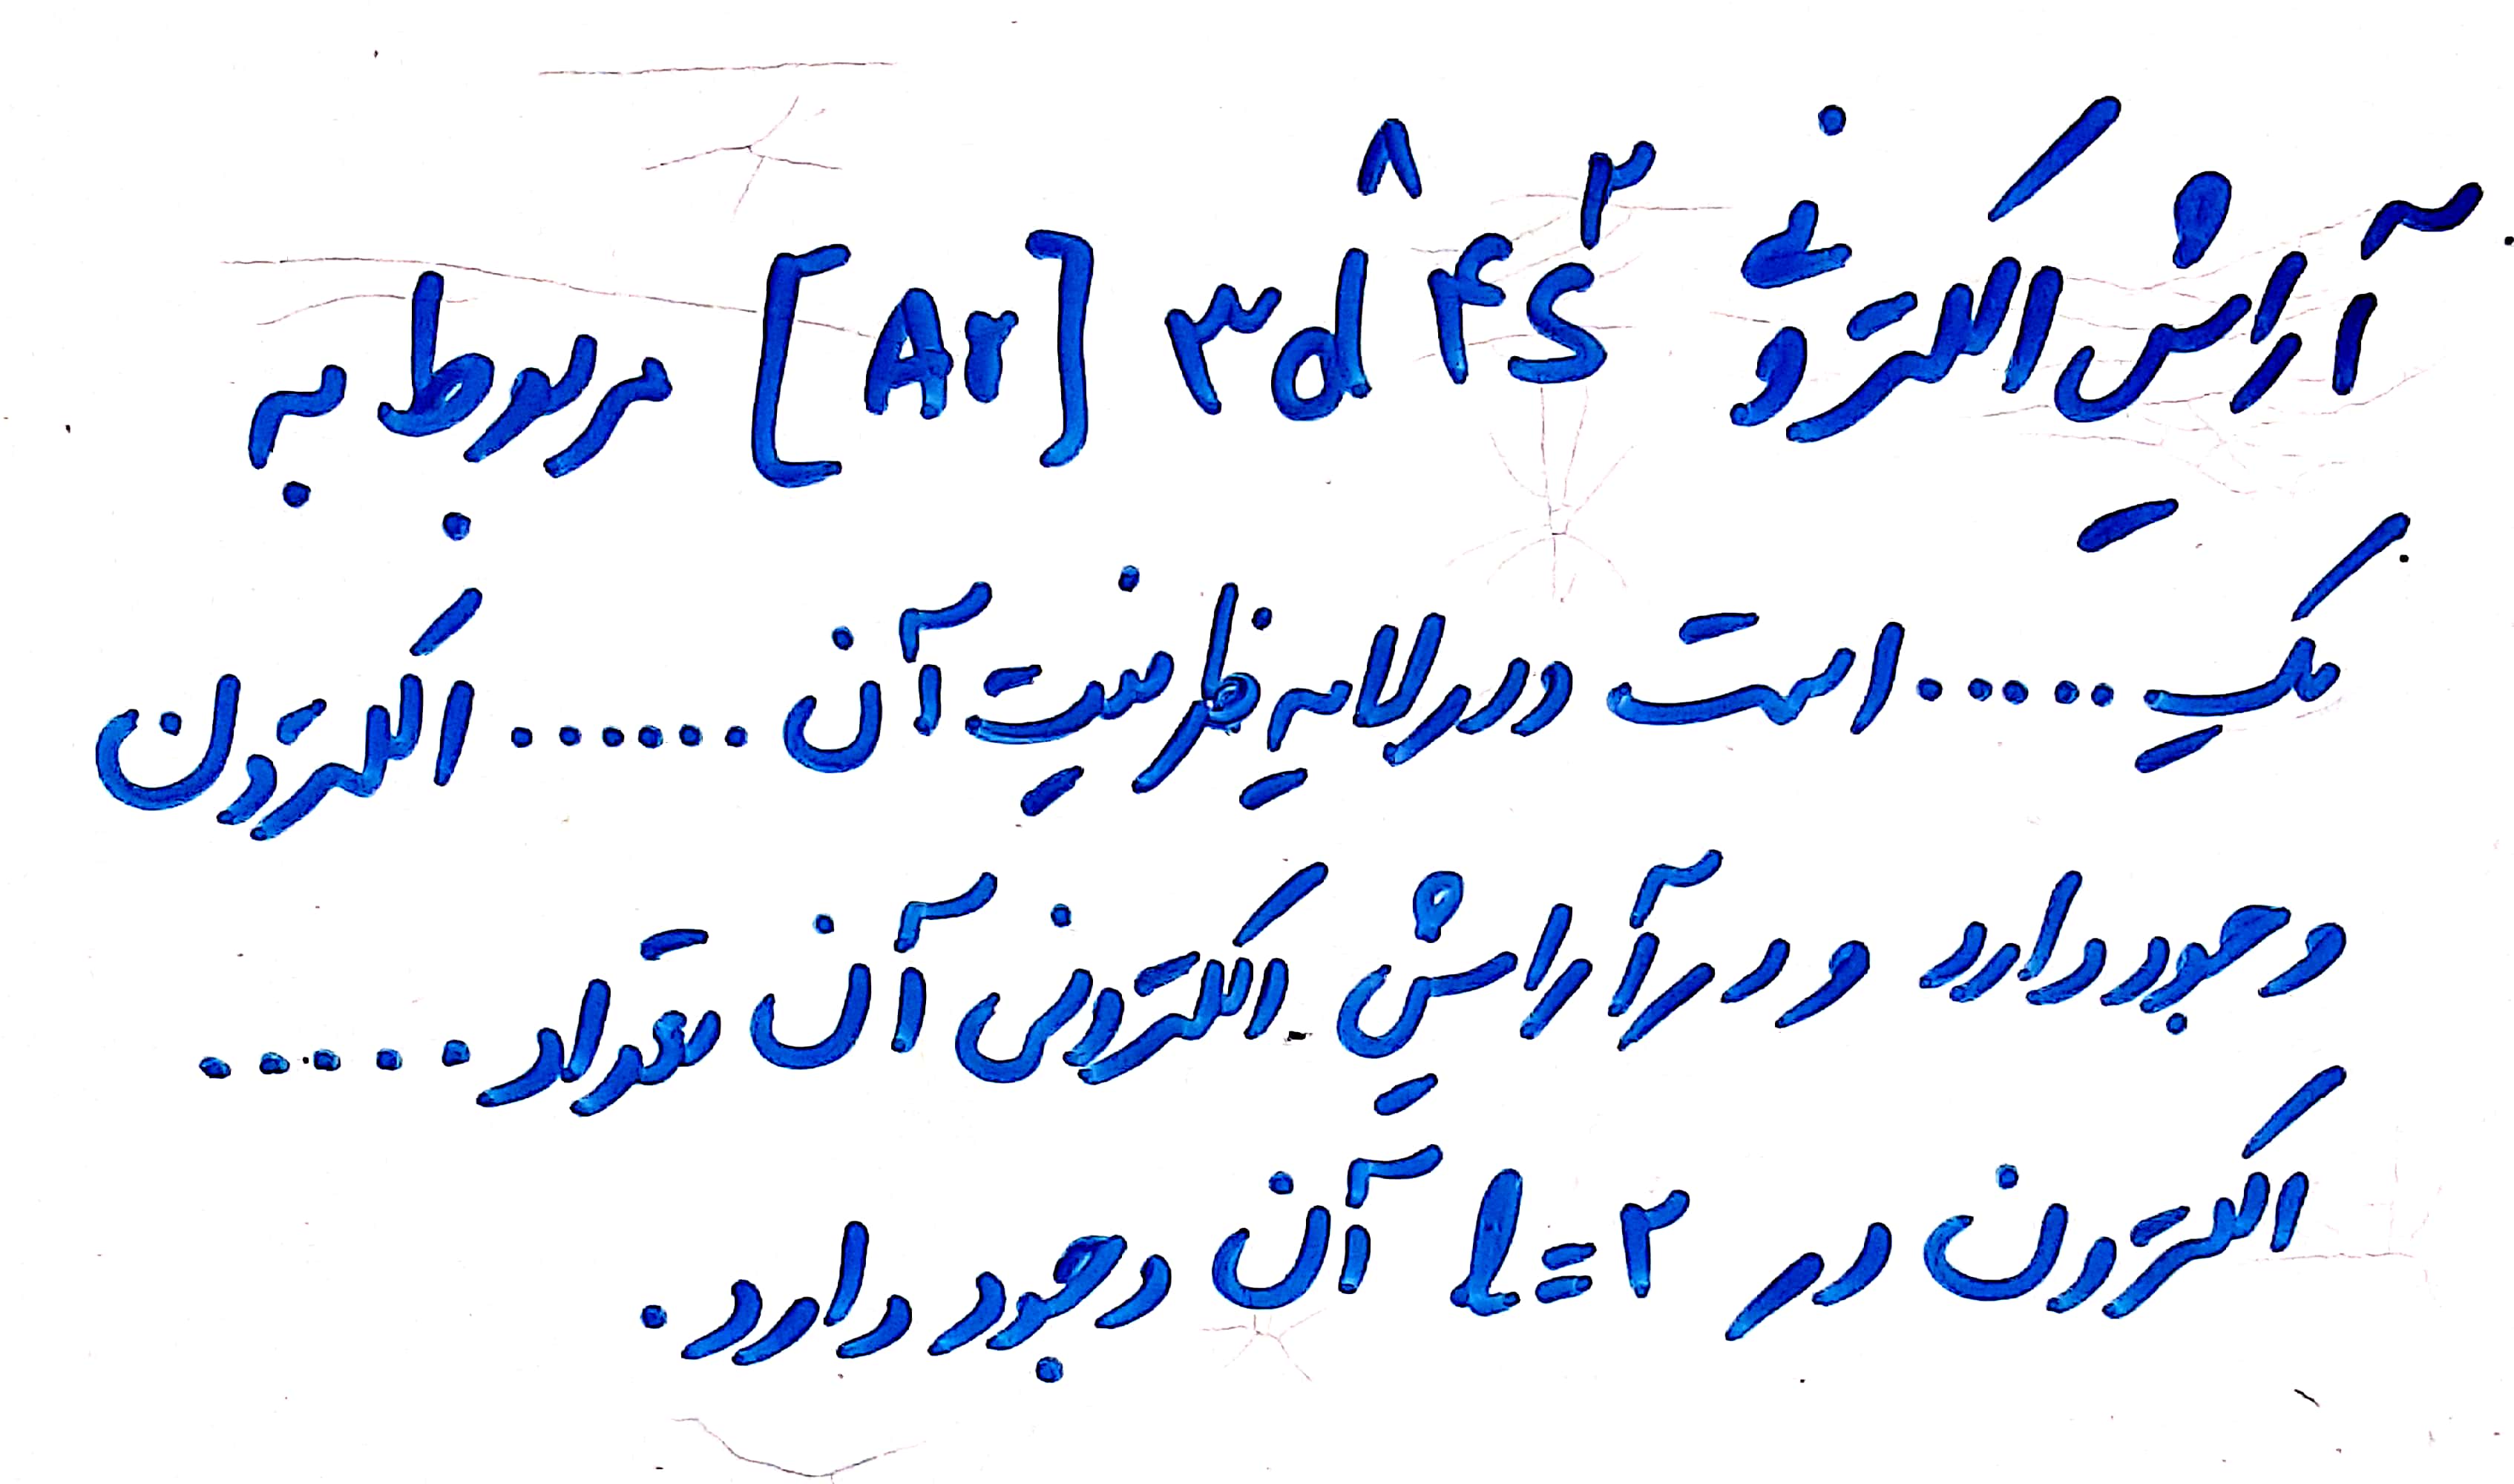 آرایش الکترونی [Ar] ۳d^۸ ۴s^۲ مربوط به
یک ..... است و در لایه ظرفیت آن ...... الکترون
وجود دارد و در آرایش الکترونی آن تعداد .....
الکترون در l=۲ آن وجود دارد.